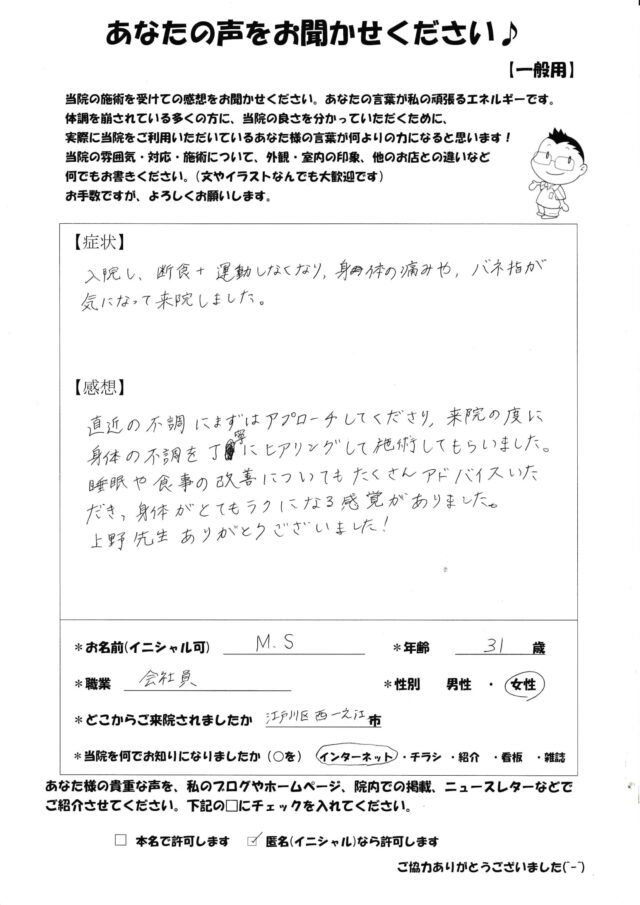 あなたの声をお聞かせください♪
【一般用】
当院の施術を受けての感想をお聞かせください。あなたの言葉が私の頑張るエネルギーです。
体調を崩されている多くの方に、当院の良さを分かっていただくために、
実際に当院をご利用いただいているあなた様の言葉が何よりの力になると思います！
当院の雰囲気・対応・施術について、外観・室内の印象、他のお店との違いなど
何でもお書きください。（文やイラストなんでも大歓迎です）
お手数ですが、よろしくお願いします。
【症状】
入院し、断食＋運動しなくなり、身体の痛みや、バネ指が
気になって来院しました。
【感想】
直近の不調にまずはアプローチしてくださり、来院の度に
身体の不調を丁寧にヒアリングして施術してもらいました。
睡眠や食事の改善についてもたくさんアドバイスいた
だき、身体がとてもラクになる感覚がありました。
上野先生ありがとうございました！
＊お名前(イニシャル可) M.S ＊年齢 31 歳
＊職業 会社員 ＊性別 男性・女性
＊どこからご来院されましたか 江戸川区西一之江市
＊当院を何でお知りになりましたか（○を） インターネット・チラシ・紹介・看板・雑誌
あなた様の貴重な声を、私のブログやホームページ、院内での掲載、ニュースレターなどで
ご紹介させてください。下記の□にチェックを入れてください。
□ 本名で許可します ☑ 匿名(イニシャル)なら許可します
ご協力ありがとうございました(^-^)